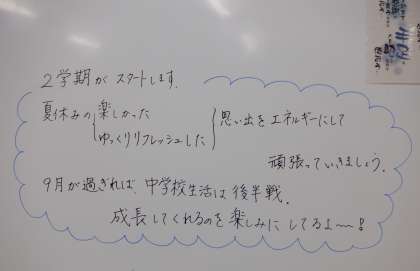 2学期がスタートします.
夏休みの 楽しかった 思い出をエネルギーにして
ゆっくりリフレッシュした
頑張っていきましょう.
9月が過ぎれば, 中学校生活は後半戦.
成長してくれるのを楽しみにしてるよ〜!